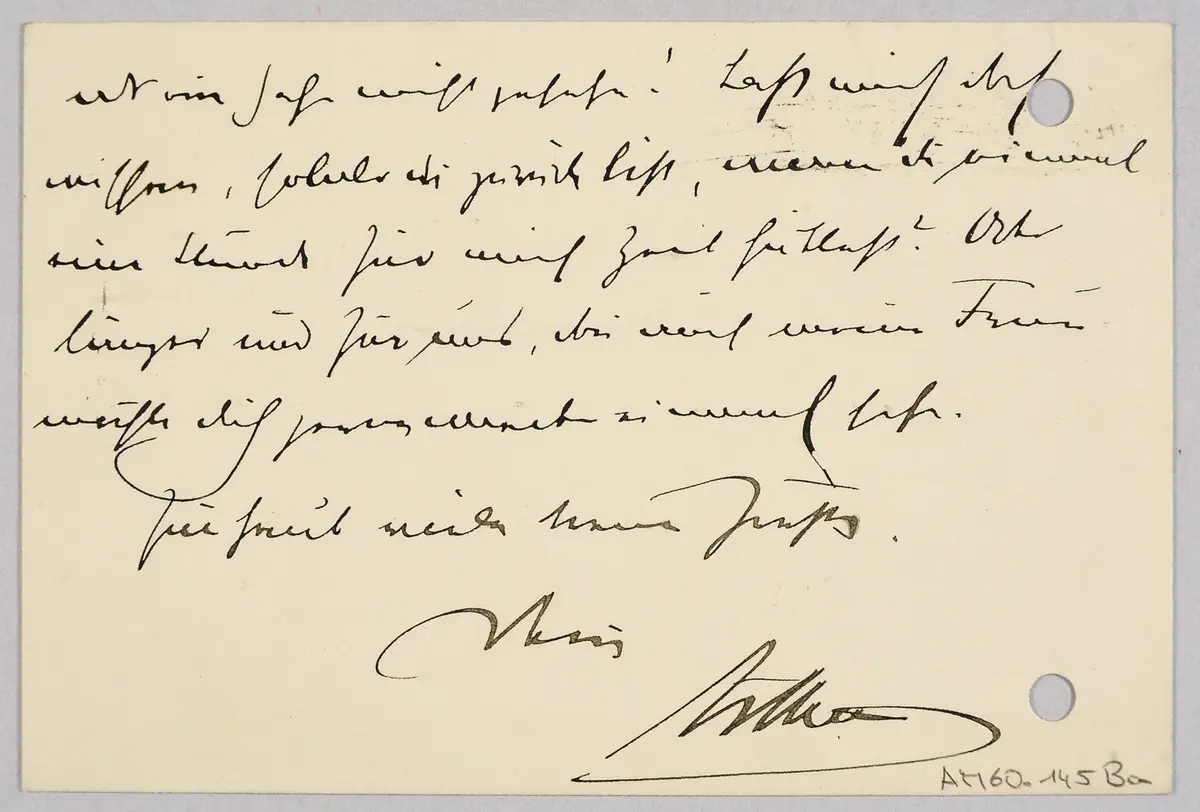 ein Jahr nicht gesehen! Laß mich doch
wissen, sobald du zurück bist, wann du einmal
eine Stunde für mich Zeit hättest? Oder
länger und für uns, da auch meine Frau
möchte dich gerne einmal sehn.
Für heut viele treue Grüße.
Dein
AM60-145 Ba